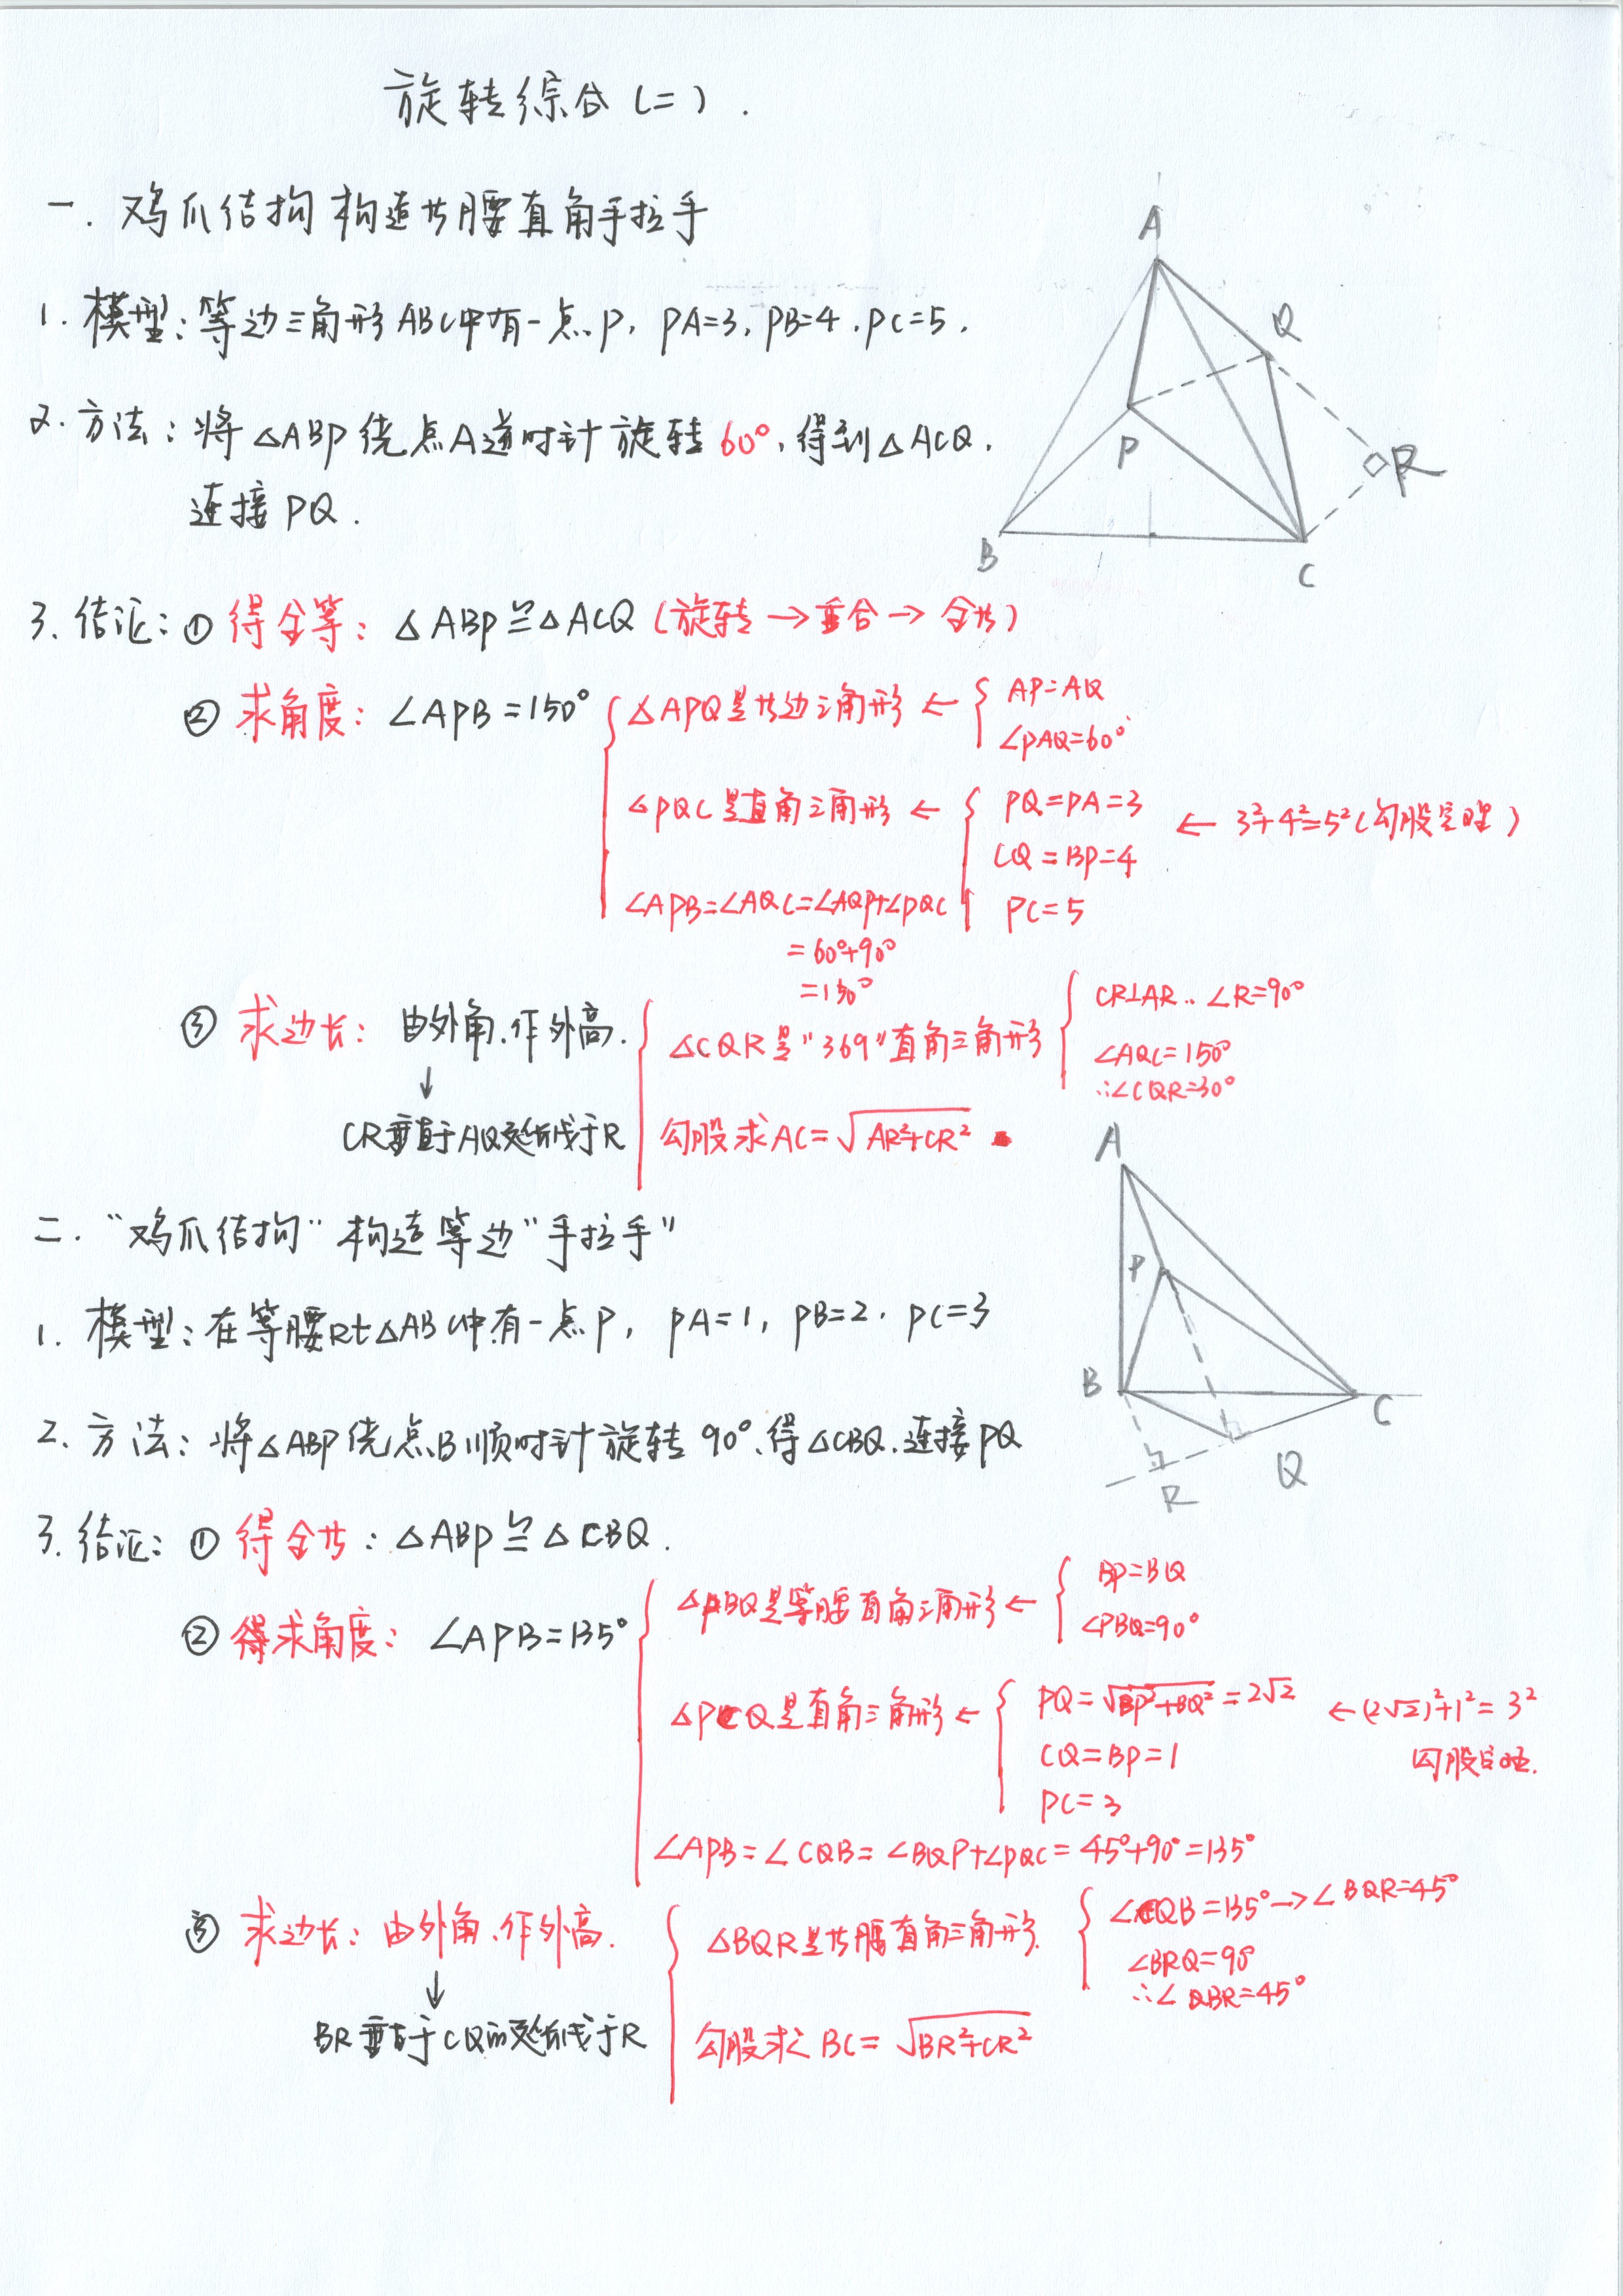 旋转综合(二).
一. 鸡爪结构 构造廾腰直角手拉手
1. 模型:等边三角形ABC中有一点P, PA=3, PB=4, PC=5.
A
Q
2. 方法: 将△ABP绕点A逆时针旋转60°,得到△ACQ.
连接PQ.
P
R
B
C
3. 结论: ① 得全等: △ABP≌△ACQ (旋转→重合→全廾)
② 求角度: ∠APB=150°
△APQ是廾边三角形 ← AP=AQ
∠PAQ=60°
△PQC是直角三角形 ← PQ=PA=3 ← 3²+4²=5²(勾股定理)
CQ=BP=4
PC=5
∠APB=∠AQC=∠AQP+∠PQC
=60°+90°
=150°
③ 求边长: 由外角.作外高.
↓
CR垂直于AQ延长线于R
△CQR是"369"直角三角形
CR⊥AR ∴ ∠R=90°
∠AQC=150°
∴∠CQR=30°
勾股求AC=√AR²+CR²
二. "鸡爪结构" 构造等边"手拉手"
A
P
B
C
R
Q
1. 模型:在等腰Rt△ABC中有一点P, PA=1, PB=2. PC=3
2. 方法: 将△ABP绕点B顺时针旋转90°.得△CBQ.连接PQ
3. 结论: ① 得全廾: △ABP≌△CBQ.
② 得求角度: ∠APB=135°
△PBQ是等腰直角三角形 ← BP=BQ
∠PBQ=90°
△PCQ是直角三角形 ← PQ=√BP²+BQ²=2√2 ← (2√2)²+1²=3²
勾股定理.
CQ=BP=1
PC=3
∠APB=∠CQB=∠BQP+∠PQC=45°+90°=135°
③ 求边长: 由外角.作外高.
↓
BR垂直于CQ的延长线于R
△BQR是廾腰直角三角形.
∠CQB=135°→∠BQR=45°
∠BRQ=90°
∴∠QBR=45°
勾股求 BC=√BR²+CR²